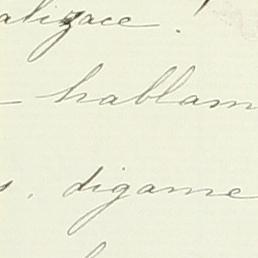 alizace.
- hablam
s. digame